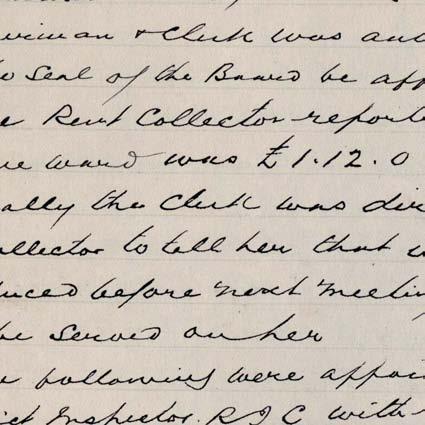 airman & Clerk was aut
he Seal of the Board be aff
e Rent Collector reporte
ne ward was £1.12.0
ally the Clerk was dir
ollector to tell her that u
duced before next Meetin
be served on her
e following were appoi
ict Inspector. R I C with